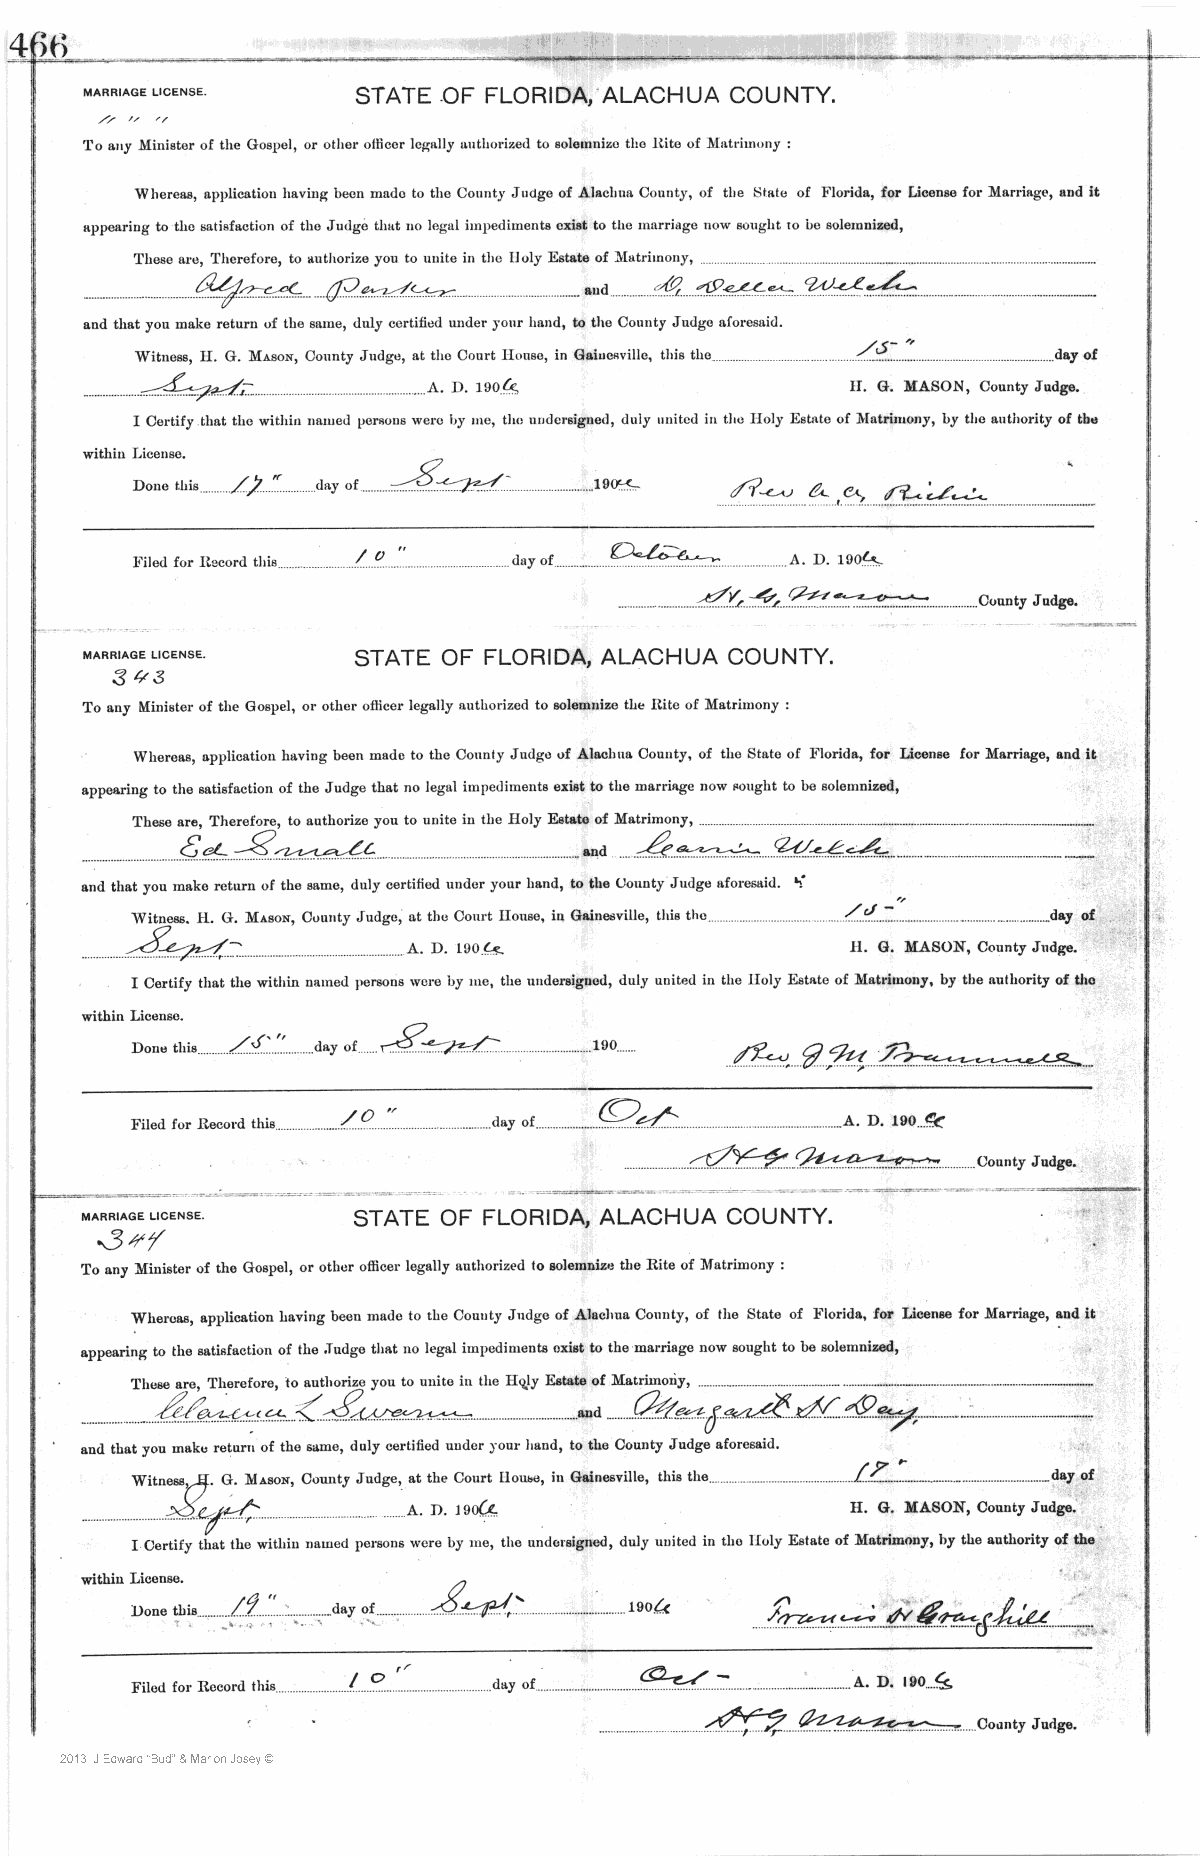 466
MARRIAGE LICENSE.
STATE OF FLORIDA, ALACHUA COUNTY.
" " "
To any Minister of the Gospel, or other officer legally authorized to solemnize the Rite of Matrimony :
Whereas, application having been made to the County Judge of Alachua County, of the State of Florida, for License for Marriage, and it
appearing to the satisfaction of the Judge that no legal impediments exist to the marriage now sought to be solemnized,
These are, Therefore, to authorize you to unite in the Holy Estate of Matrimony,
Alfred Parker and D. Della Welch
and that you make return of the same, duly certified under your hand, to the County Judge aforesaid.
Witness, H. G. MASON, County Judge, at the Court House, in Gainesville, this the 15" day of
Sept. A. D. 1906 H. G. MASON, County Judge.
I Certify that the within named persons were by me, the undersigned, duly united in the Holy Estate of Matrimony, by the authority of the
within License.
Done this 17" day of Sept 1906 Rev A. A. Richie
Filed for Record this 10" day of October A. D. 1906
H. G. Mason County Judge.
MARRIAGE LICENSE.
STATE OF FLORIDA, ALACHUA COUNTY.
343
To any Minister of the Gospel, or other officer legally authorized to solemnize the Rite of Matrimony :
Whereas, application having been made to the County Judge of Alachua County, of the State of Florida, for License for Marriage, and it
appearing to the satisfaction of the Judge that no legal impediments exist to the marriage now sought to be solemnized,
These are, Therefore, to authorize you to unite in the Holy Estate of Matrimony,
Ed Small and Carrie Welch
and that you make return of the same, duly certified under your hand, to the County Judge aforesaid.
Witness. H. G. MASON, County Judge, at the Court House, in Gainesville, this the 15" day of
Sept. A. D. 1906 H. G. MASON, County Judge.
I Certify that the within named persons were by me, the undersigned, duly united in the Holy Estate of Matrimony, by the authority of the
within License.
Done this 15" day of Sept 190 Rev. J. M. Trammell
Filed for Record this 10" day of Oct A. D. 1906
H G Mason County Judge.
MARRIAGE LICENSE.
STATE OF FLORIDA, ALACHUA COUNTY.
344
To any Minister of the Gospel, or other officer legally authorized to solemnize the Rite of Matrimony :
Whereas, application having been made to the County Judge of Alachua County, of the State of Florida, for License for Marriage, and it
appearing to the satisfaction of the Judge that no legal impediments exist to the marriage now sought to be solemnized,
These are, Therefore, to authorize you to unite in the Holy Estate of Matrimony,
Clarence L Swann and Margaret H Day.
and that you make return of the same, duly certified under your hand, to the County Judge aforesaid.
Witness, H. G. MASON, County Judge, at the Court House, in Gainesville, this the 17" day of
Sept. A. D. 1906 H. G. MASON, County Judge.
I Certify that the within named persons were by me, the undersigned, duly united in the Holy Estate of Matrimony, by the authority of the
within License.
Done this 19" day of Sept. 1906 Francis H Craighill
Filed for Record this 10" day of Oct - A. D. 1906
H. G. Mason County Judge.
2013 J Edward "Bud" & Marion Josey ©